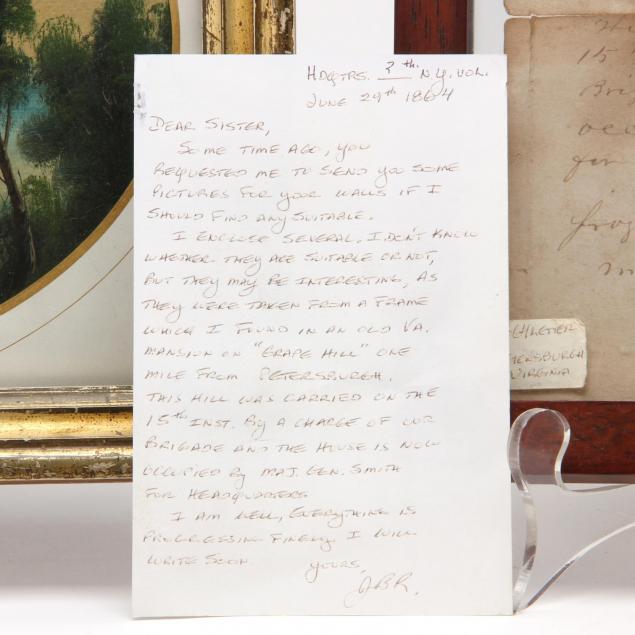 HDQTRS. ?th N.Y. VOL.
JUNE 29th 1864
DEAR SISTER,
SOME TIME AGO, YOU
REQUESTED ME TO SEND YOU SOME
PICTURES FOR YOUR WALLS IF I
SHOULD FIND ANY SUITABLE.
I ENCLOSE SEVERAL. I DON'T KNOW
WHETHER THEY ARE SUITABLE OR NOT,
BUT THEY MAY BE INTERESTING, AS
THEY WERE TAKEN FROM A FRAME
WHICH I FOUND IN AN OLD VA.
MANSION ON "GRAPE HILL" ONE
MILE FROM PETERSBURGH.
THIS HILL WAS CARRIED ON THE
15th INST. BY A CHARGE OF OUR
BRIGADE AND THE HOUSE IS NOW
OCCUPIED BY MAJ. GEN. SMITH
FOR HEADQUARTERS
I AM WELL, EVERYTHING IS
PROGRESSING FINELY I WILL
WRITE SOON
YOURS,
15
for
VIRGINIA